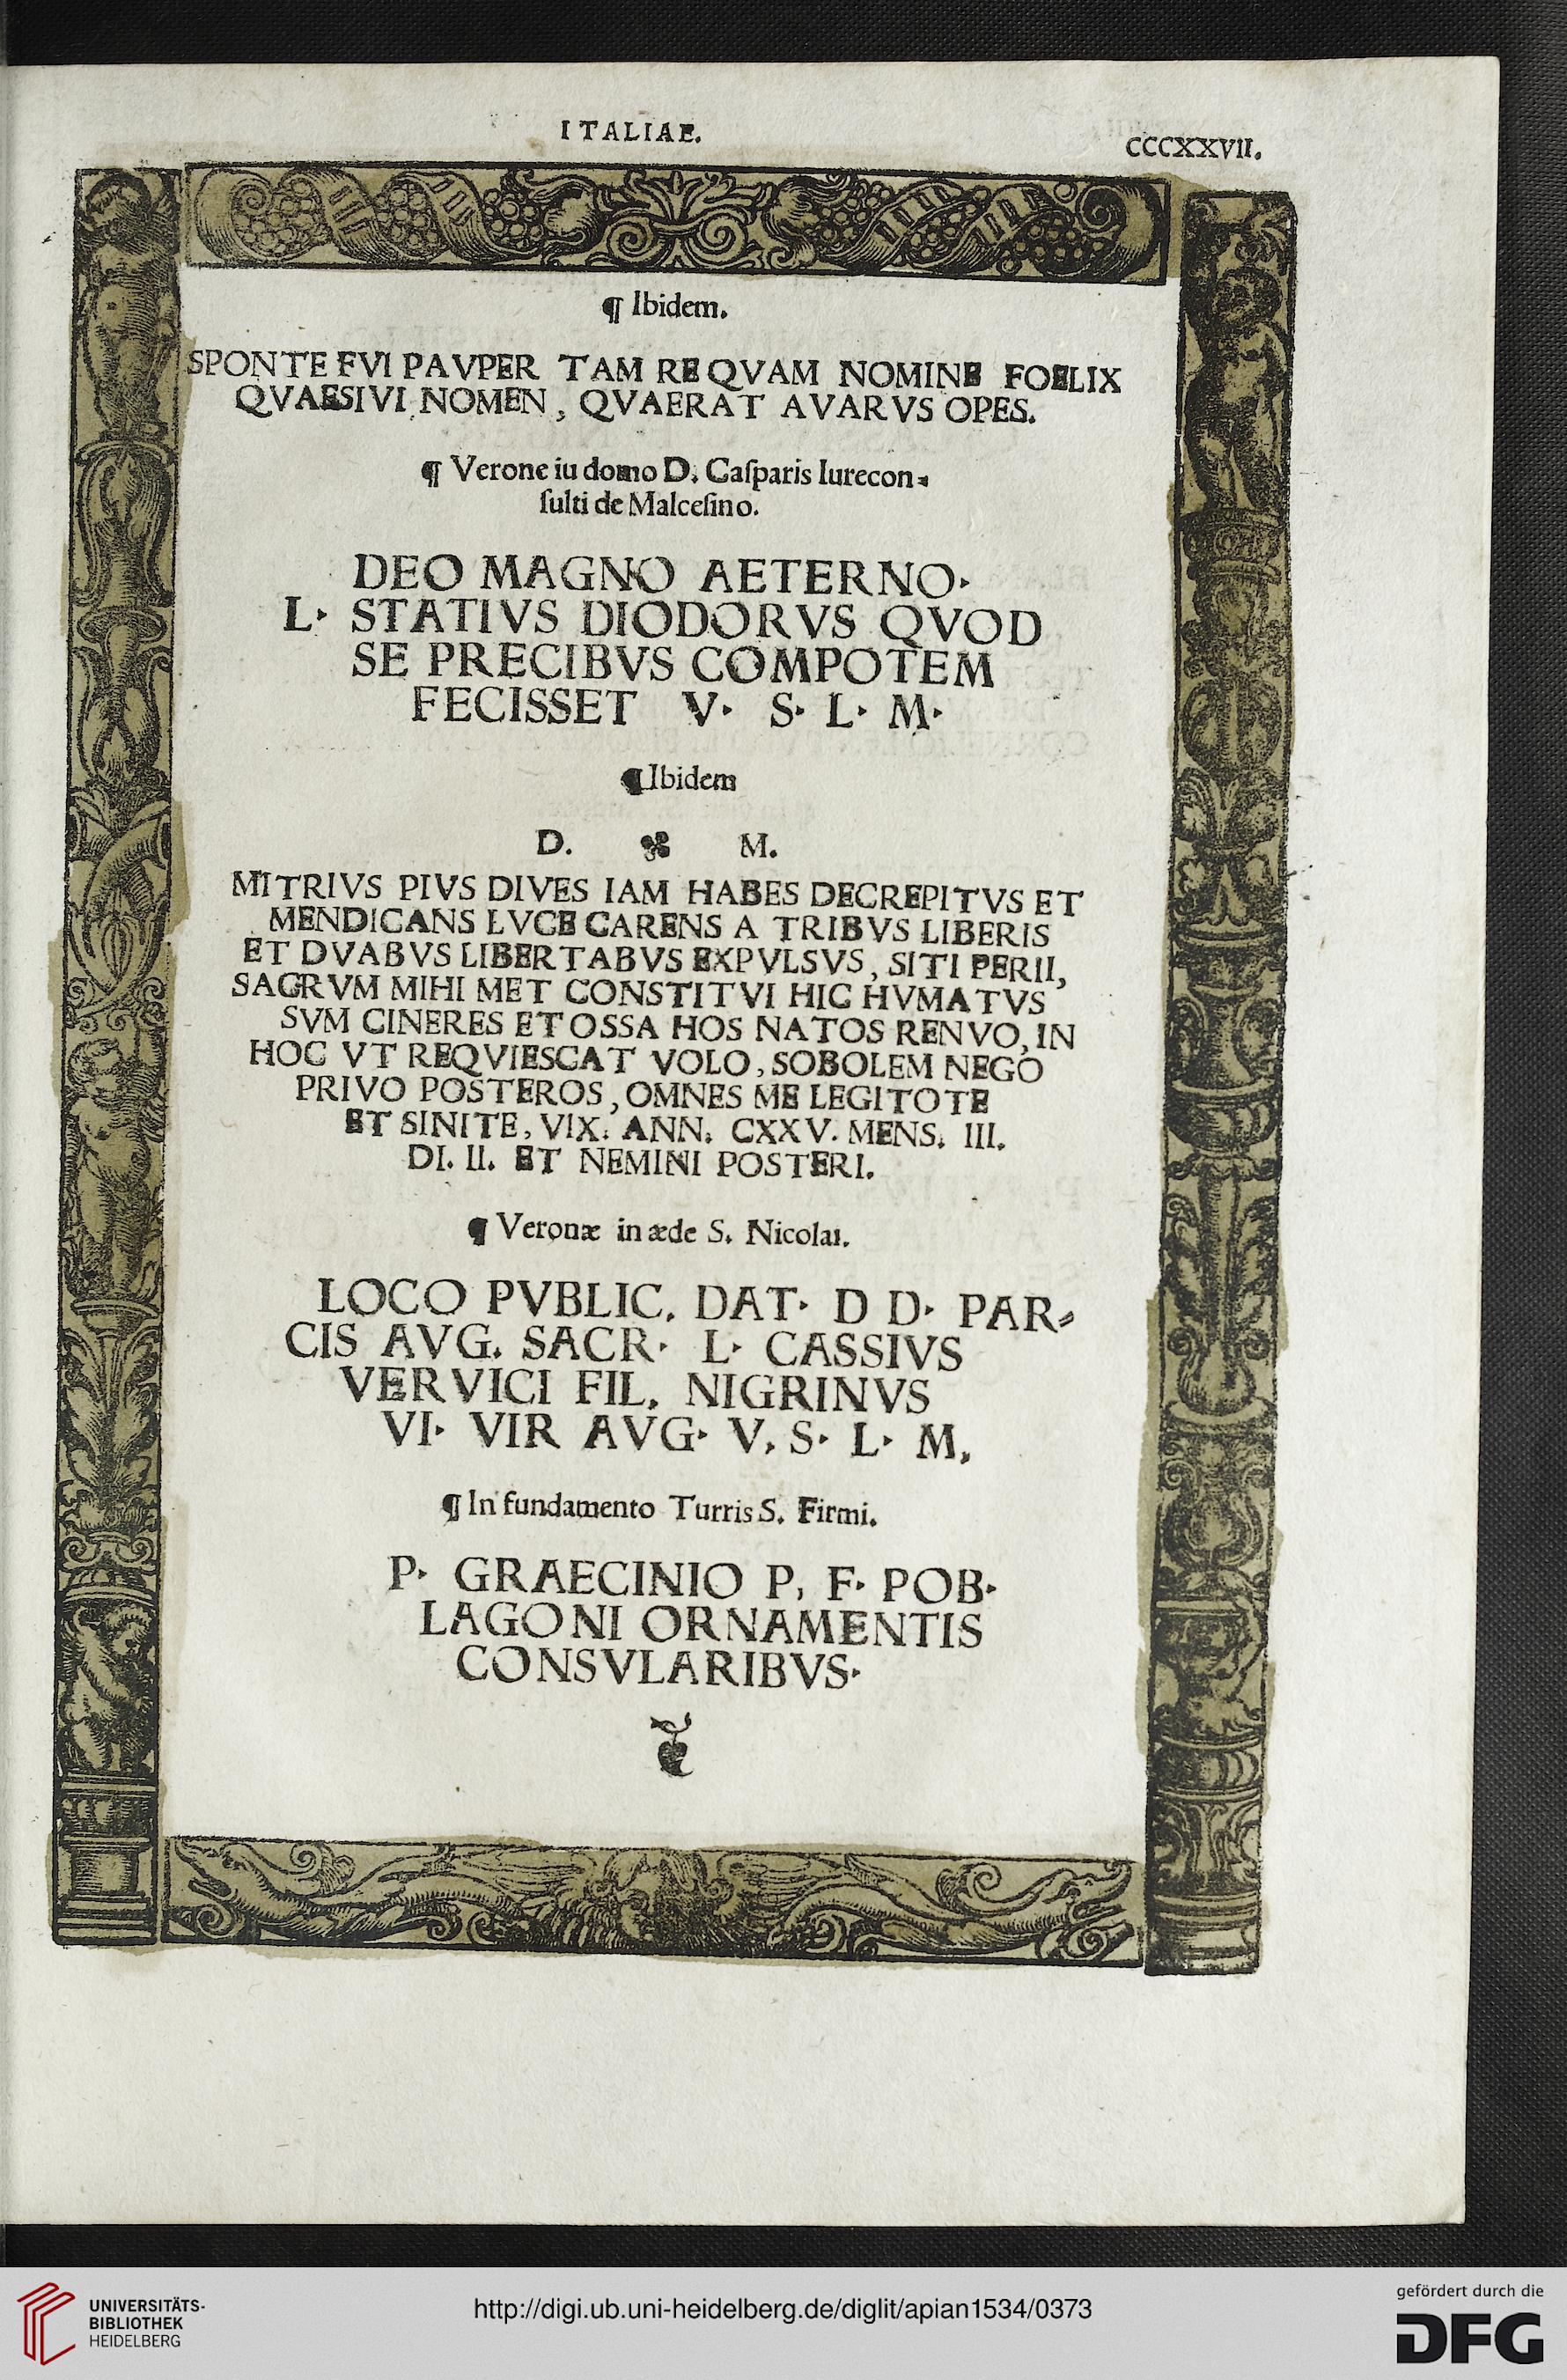 ITALIAE.
CCCXXVII.
¶ Ibidem.
SPONTE FVI PAVPER TAM RE QVAM NOMINE FOELIX
QVAESIVI NOMEN, QVAERAT AVARVS OPES.
¶ Verone iu domo D. Caſparis Iurecon⸗
ſulti de Malceſino.
DEO MAGNO AETERNO·
L· STATIVS DIODORVS QVOD
SE PRECIBVS COMPOTEM
FECISSET V· S· L· M·
¶ Ibidem
D. M.
MITRIVS PIVS DIVES IAM HABES DECREPITVS ET
MENDICANS LVCE CARENS A TRIBVS LIBERIS
ET DVABVS LIBERTABVS EXPVLSVS, SITI PERII,
SACRVM MIHI MET CONSTITVI HIC HVMATVS
SVM CINERES ET OSSA HOS NATOS RENVO, IN
HOC VT REQVIESCAT VOLO, SOBOLEM NEGO
PRIVO POSTEROS, OMNES ME LEGITOTE
ET SINITE, VIX. ANN. CXXV. MENS. III.
DI. II. ET NEMINI POSTERI.
¶ Veronæ in æde S. Nicolai.
LOCO PVBLIC. DAT· D D· PAR⸗
CIS AVG. SACR· L· CASSIVS
VERVICI FIL. NIGRINVS
VI· VIR AVG· V, S· L· M,
¶ In fundamento Turris S. Firmi.
P· GRAECINIO P, F· POB·
LAGONI ORNAMENTIS
CONSVLARIBVS·
UNIVERSITÄTS-
BIBLIOTHEK
HEIDELBERG
http://digi.ub.uni-heidelberg.de/diglit/apian1534/0373
gefördert durch die
DFG